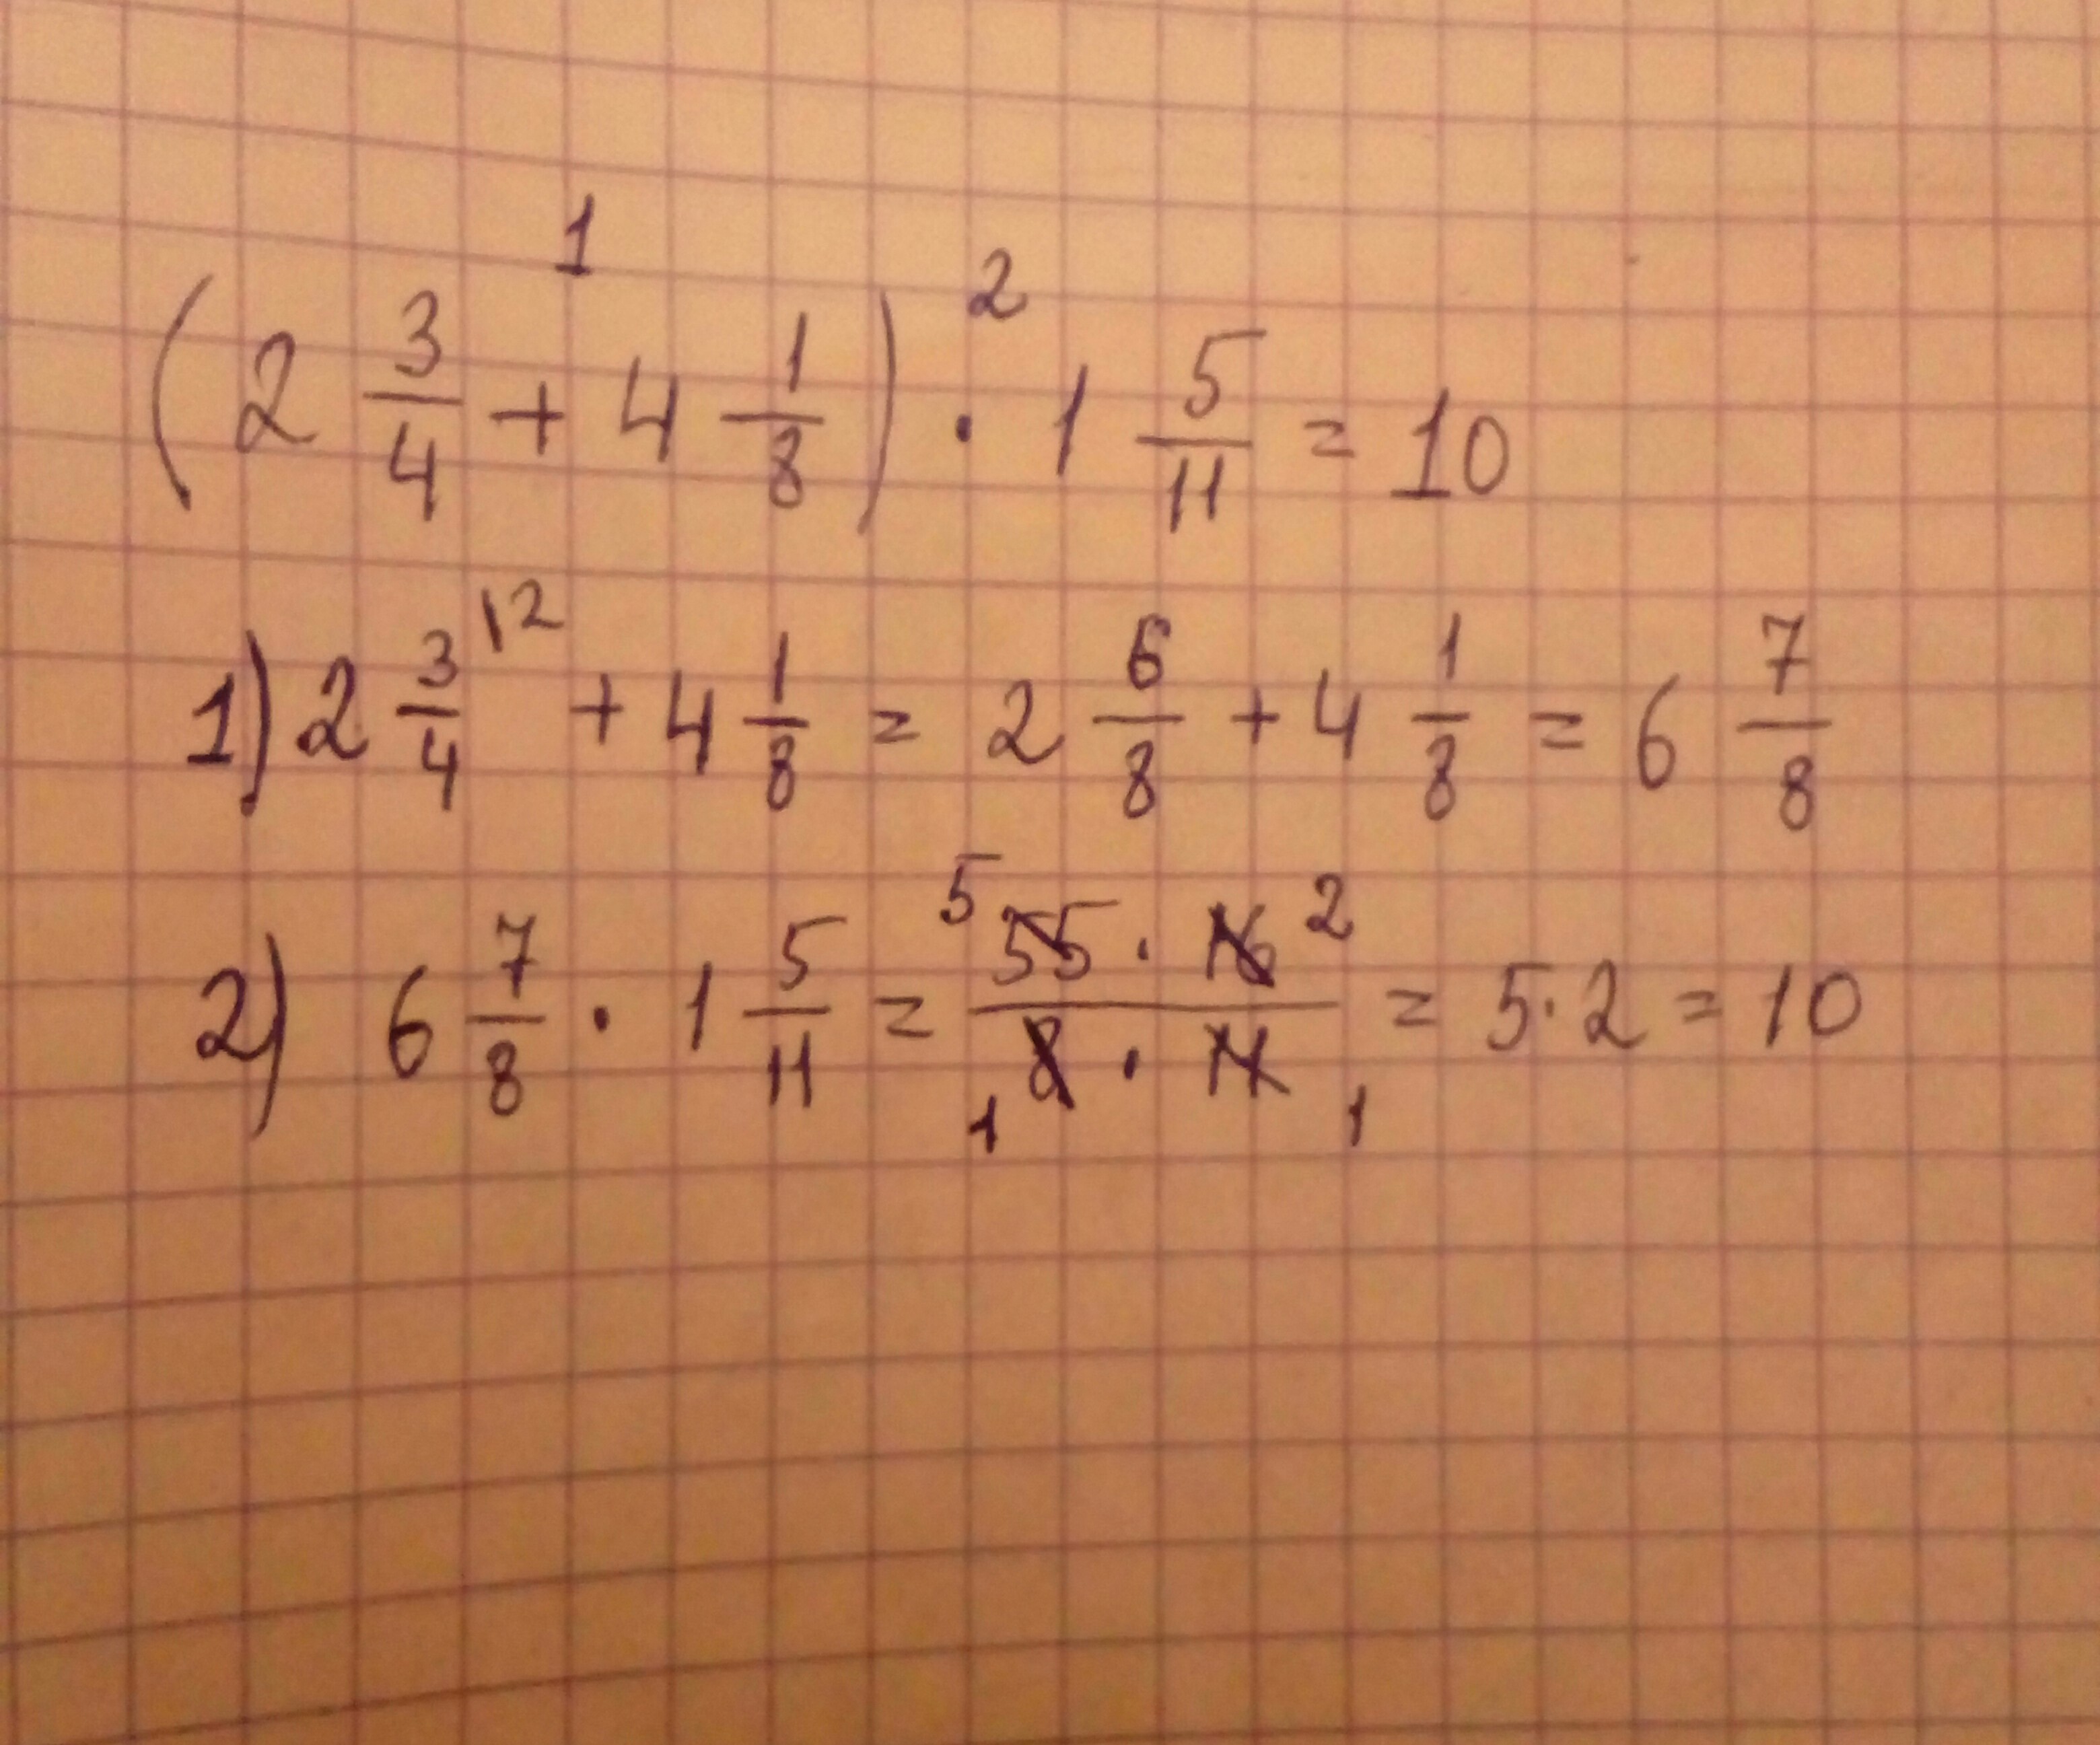 (2 3/4 +¹ 4 1/8) ·² 1 5/11 = 10
1) 2 3/4 \² + 4 1/8 = 2 6/8 + 4 1/8 = 6 7/8
2) 6 7/8 · 1 5/11 = ⁵55 · 16² / ₁8 · 11₁ = 5 · 2 = 10